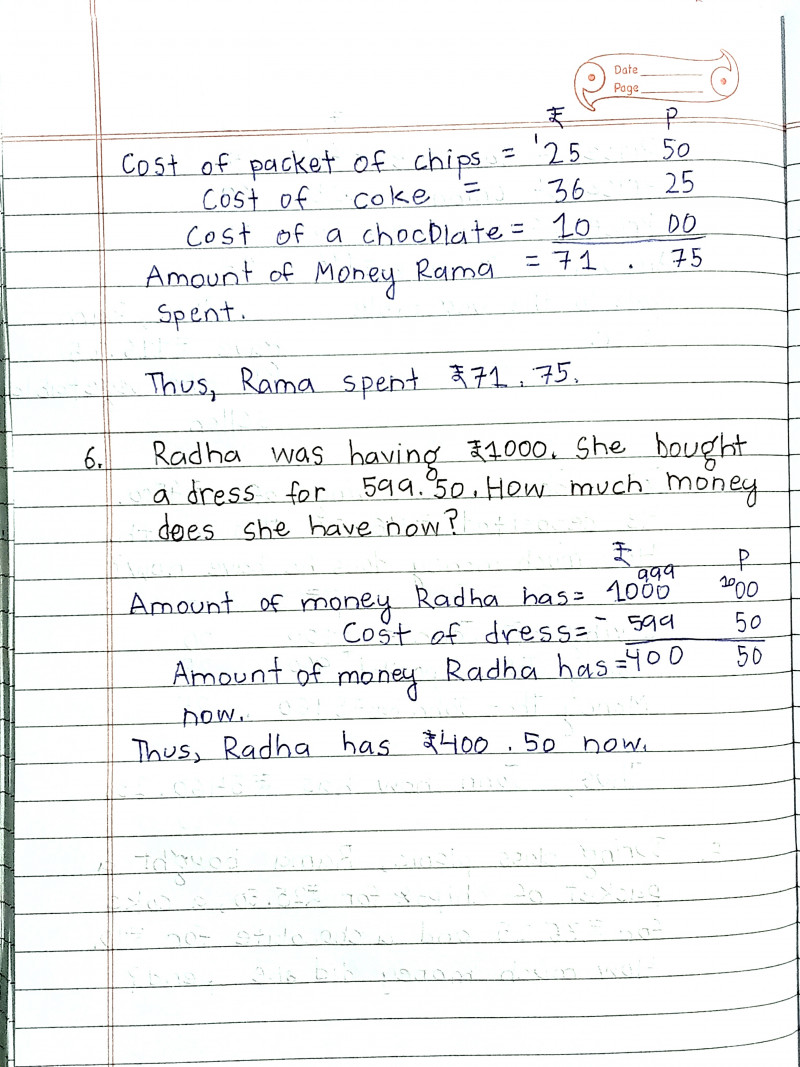 Date
Page
₹ P
Cost of packet of chips = 1 25 50
Cost of coke = 36 25
Cost of a chocolate = 10 00
Amount of Money Rama = 71 . 75
Spent.
Thus, Rama spent ₹71.75.
6. Radha was having ₹1000. She bought
a dress for 599.50. How much money
does she have now?
₹ P
999 10
Amount of money Radha has = 1000 00
Cost of dress = - 599 50
Amount of money Radha has = 400 50
now.
Thus, Radha has ₹400.50 now.